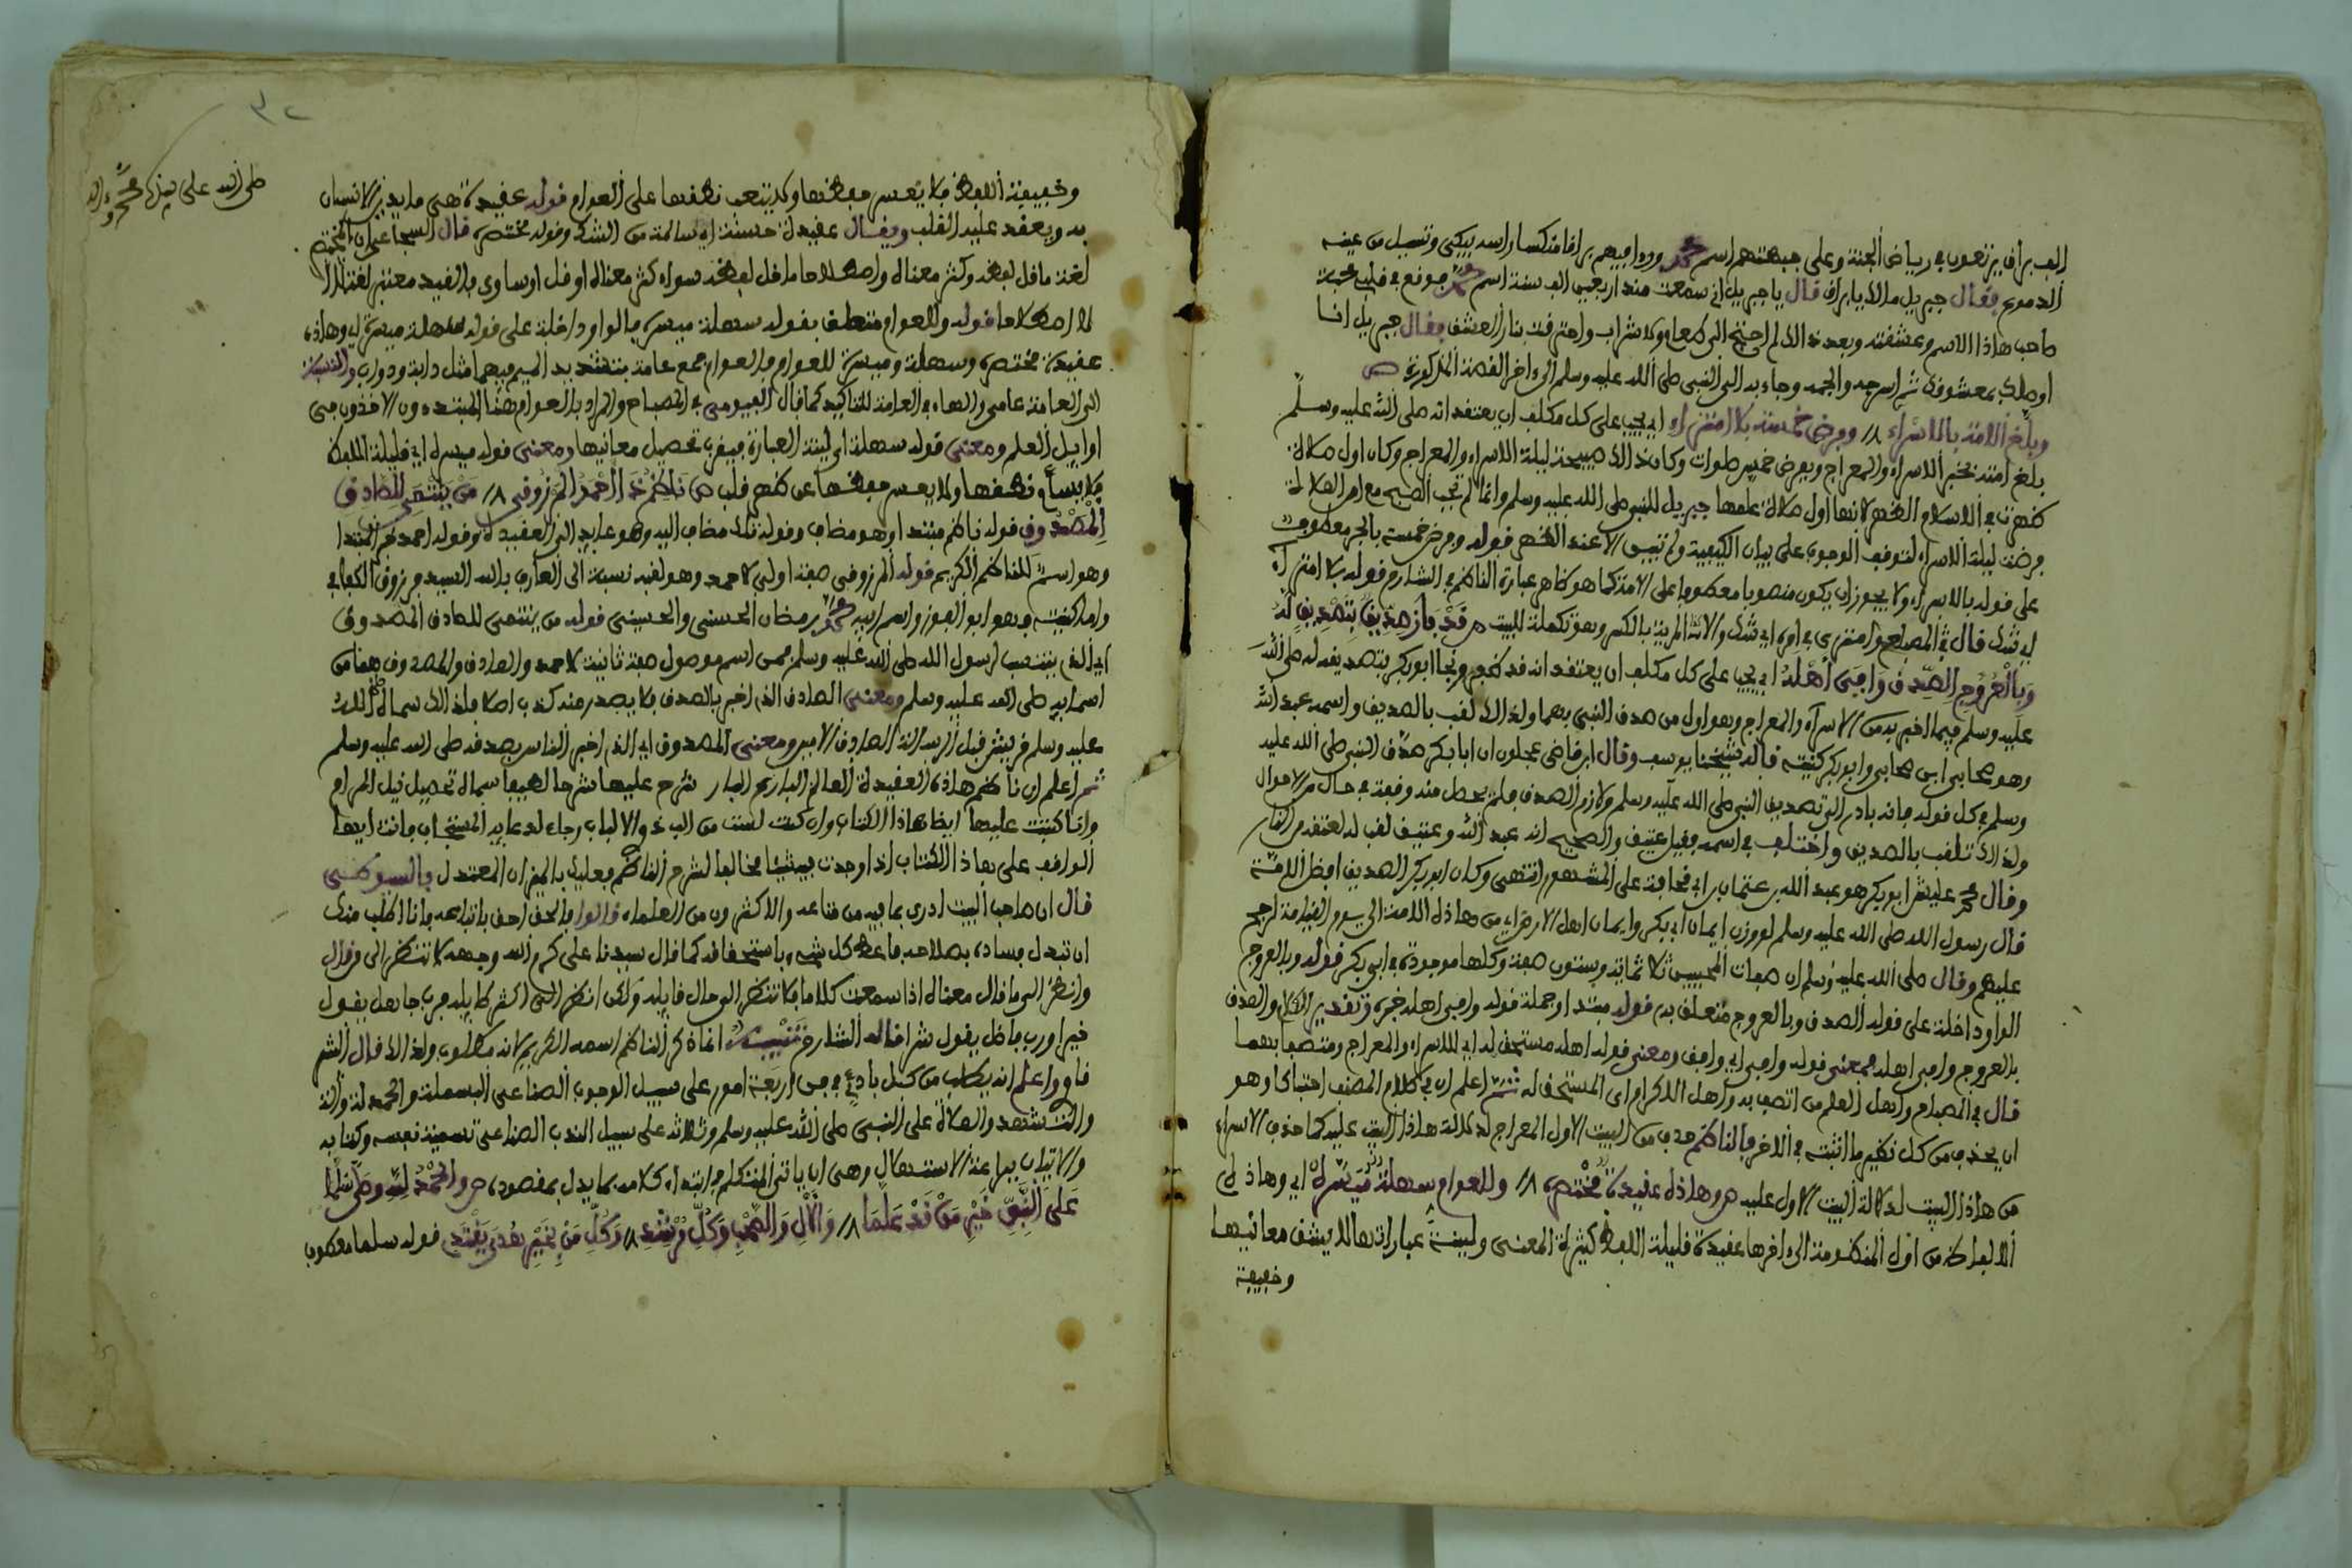 الف براق يرتعون في رياض الجنة وعلى جبهتهم اسم محمد ورءا فيهم براقا منكسا راسه يبكي وتسيل من عينيه
الدموع فقال جبريل مالك يا براق قال يا جبريل اني سمعت منذ اربعين الف سنة اسم محمد فوقع في قلبي محبة
صاحب هاذا الاسم وعشقته وبعد ذالك لم احتج الى طعام ولا شراب واحترقت بنار العشق فقال جبريل انا
اوصلك بمعشوقك ثم اسرجه والجمه وجاء به الى النبي صلى الله عليه وسلم الى ءاخر القصة المذكورة ص
وبلغ الامة بالاسراء // وفرض خمسة بلا امتراء اي يجب على كل مكلف ان يعتقد انه صلى الله عليه وسلم
بلغ امته بخبر الاسراء والمعراج وبفرض خمس صلوات وكان ذالك صبيحة ليلة الاسراء والمعراج وكان اول صلاة
ظهرت في الاسلام الظهر لانها اول صلاة علمها جبريل للنبي صلى الله عليه وسلم وانما لم تجب الصبح مع امر الصلاة
فرضت ليلة الاسراء لتوقف الوجوب على بيان الكيفية ولم تبين الا عند الظهر قوله وفرض خمسة بالجر معطوف
على قوله بالاسراء ولا يجوز ان يكون منصوبا معطوفا على الامة كما هو ظاهر عبارة الناظم في الشارح قوله بلا امتراء
اي شك قال في المصباح وامترى في امره اي شك والاسم المرية بالكسر وهو تكملة للبيت ص قد فاز صديق بتصديق له
وبالعروج الصدق وافى اهله اي يجب على كل مكلف ان يعتقد انه قد ظفر ونجا ابو بكر بتصديقه له صلى الله
عليه وسلم فيما اخبر به من الاسراء والمعراج وهو اول من صدق النبي بهما ولذالك لقب بالصديق واسمه عبد الله
وهو صحابي ابن صحابي وابو بكر كنيته قاله شيخنا يوسف وقال ابن قاضي عجلون ان ابا بكر صدق النبي صلى الله عليه
وسلم في كل قوله فانه بادر الى تصديق النبي صلى الله عليه وسلم ولازم الصدق فلم يحصل منه وقفة في حال من الاحوال
ولذالك تلقب بالصديق واختلف في اسمه فقيل عتيق والصحيح انه عبد الله وعتيق لقب له لعتقه من النار
وقال محمد عليش ابو بكر هو عبد الله بن عثمان ابي قحافة على المشهور انتهى وكان ابو بكر الصديق افضل الامة
قال رسول الله صلى الله عليه وسلم لو وزن ايمان ابي بكر وايمان اهل الارض من هاذه الامة الى يوم القيامة لرجح
عليهم وقال صلى الله عليه وسلم ان صفات المحبين ثلاثمائة وستون صفة وكلها موجودة في ابي بكر قوله وبالعروج
الواو داخلة على قوله الصدق وبالعروج متعلق به قوله مبتدا وجملة قوله وافى اهله خبره وتقدير الكلام والصدق
بالعروج وافى اهله فمعنى قوله وافى اي وافق ومعنى قوله اهله مستحق له اي للاسراء والمعراج ومتصفا بهما
قال في المصباح واهل العلم من اتصف به واهل الاكرام اي المستحق له ثم اعلم ان في كلام المصنف احتباكا وهو
ان يحذف من كل نظير ما اثبته في الاخر فالناظم حذف من البيت الاول المعراج لدلالة هاذا البيت عليه كما حذف الاسراء
من هاذا البيت لدلالة البيت الاول عليه ص وهاذه عقيدة مختصره // وللعوام سهلة ميسره اي وهاذه
الالفاظ من اول المنظومة الى ءاخرها عقيدة قليلة اللفظ كثيرة المعنى ولينة عباراتها لا يشق معانيها
وخفيفة
٣٢
صلى الله على سيدنا محمد وءاله
وخفيفة اللفظ فلا يعسر حفظها ولا يتعب نظمها على العوام قوله عقيدة هي ما يدين الانسان
به ويعقد عليه القلب ويقال عقيدة حسنة اي سالمة من الشك وقوله مختصره قال السجاعي ان المختصر
لغة ما قل لفظه وكثر معناه واصطلاحا ما قل لفظه سواء كثر معناه او قل او ساوى فالقيد معتبر لغة لا
لا اصطلاحا قوله وللعوام متعلق بقوله سهلة ميسره فالواو داخلة على قوله سهلة ميسره اي وهاذه
عقيدة مختصرة وسهلة وميسرة للعوام والعوام جمع عامة بتشديد الميم فيهما مثل دابة ودواب والنسبة
الى العامة عامي والهاء في العامة للتاكيد كما قال الفيومي في المصباح والمراد بالعوام هنا المبتدءون الاخذون في
اوايل العلم ومعنى قوله سهلة اي لينة العبارة فيقرب تحصيل معانيها ومعنى قوله ميسره اي قليلة اللفظ
فلا يسأم نظمها ولا يعسر حفظها عن ظهر قلب ص ناظم تلك احمد المرزوقي // من ينتمي للصادق
المصدوق قوله ناظم مبتدا وهو مضاف وقوله تلك مضاف اليه وهو عايد الى العقيدة وقوله احمد خبر المبتدا
وهو اسم للناظم الكريم قوله المرزوقي صفة اولى لاحمد وهو لقبه نسبة الى العارف بالله السيد مرزوق الكفافي
واما كنيته فهو ابو الفوز واسم ابيه محمد بن رمضان الحسني والحسيني قوله من ينتمي للصادق المصدوق
اي الذي ينتسب لرسول الله صلى الله عليه وسلم فمن اسم موصول صفة ثانية لاحمد والصادق والمصدوق هما من
اسمائه صلى الله عليه وسلم ومعنى الصادق الذي اخبر بالصدق فلا يصدر منه كذب اصلا ولذالك سماه صلى الله
عليه وسلم قريش قبل الرسالة الصادق الامين ومعنى المصدوق اي الذي اخبر الناس بصدقه صلى الله عليه وسلم
ثم اعلم ان ناظم هاذه العقيدة العالم البارع البار شرح عليها شرحا لطيفا سماه تحصيل نيل المرام
وانا كتبت عليها ايضا هاذا الكتاب وان كنت لست من البذ والالباب رجاء لدعايه المستجاب فانت ايها
الواقف على هاذا الكتاب اذا وجدت شيئا مخالفا لشرح الناظم فعليك بالميزان المعتدل قال السوكني
قال ان صاحب البيت ادرى بما فيه من متاعه والاكثرون من العلماء قالوا فالحق احق باتباعه وانا اطلب منك
ان تبدل فساده بصلاحه فاعط كل شيء باستحقاقه كما قال سيدنا علي كرم الله وجهه لا تنظر الى من قال
وانظر الى ما قال معناه اذا سمعت كلاما فلا تنظر الى حال قايله ولكن انظر الى اكثر طايله فرب جاهل يقول
خيرا ورب فاضل يقول شرا قاله الشارح تنبيه انما ذكر الناظم اسمه الكريم لانه مطلوب ولذالك قال الشر
قاوي اعلم انه يطلب من كل بادئ في فن اربعة امور على سبيل الوجوب الصناعي البسملة والحمدلة
والتشهد والصلاة على النبي صلى الله عليه وسلم وثلاثة على سبيل الندب الصناعي تسمية نفسه وكتابه
والاتيان ببراعة الاستهلال وهي ان ياتي المتكلم في ابتداء كلامه بما يدل بمقصوده ص والحمد لله وصلى سلما
على النبي خير من قد علما // والال والصحب وكل مرشد // وكل من بخير هدي يقتدي قوله سلما معطوف